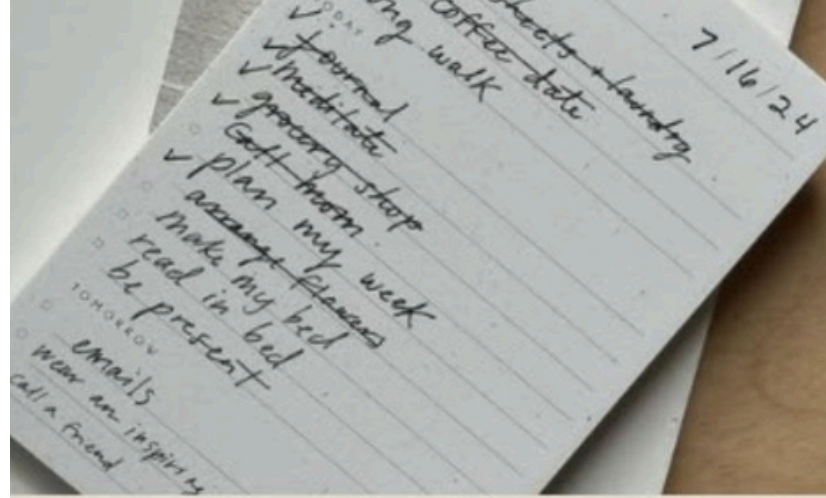 7/16/24
sheets + laundry
coffee date
long walk
TODAY
journal
meditate
grocery shop
Call mom
plan my week
arrange flowers
make my bed
read in bed
be present
TOMORROW
emails
wear an inspiring
call a friend